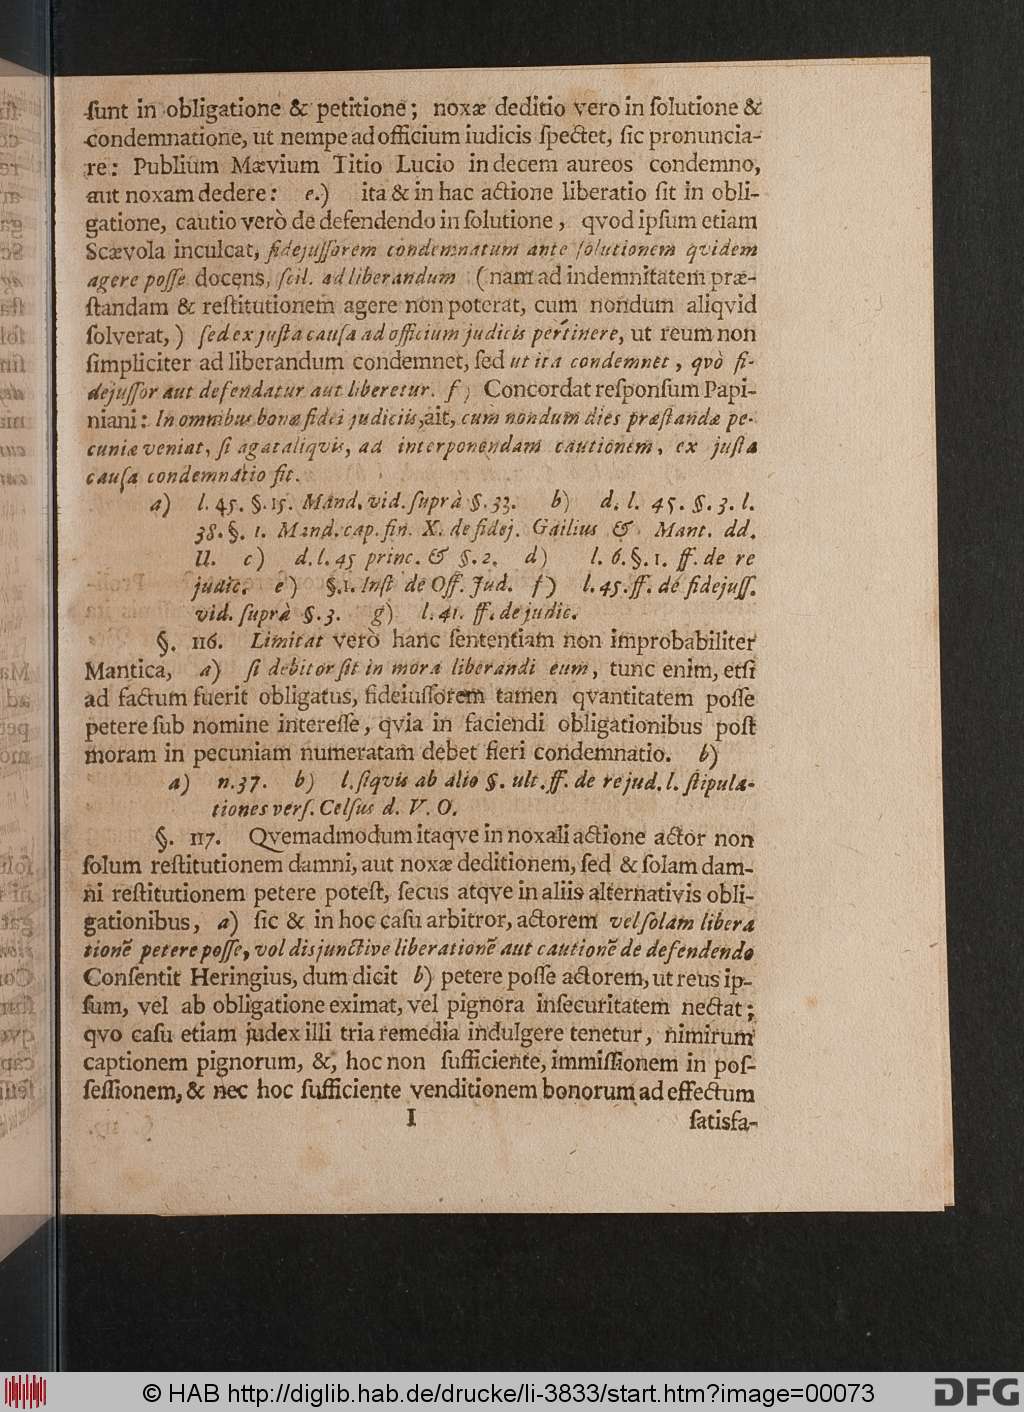 ſunt in obligatione & petitione; noxæ deditio vero in ſolutione &
condemnatione, ut nempe ad officium iudicis ſpectet, ſic pronuncia-
re: Publium Mævium Titio Lucio in decem aureos condemno,
aut noxam dedere: e.) ita & in hac actione liberatio ſit in obli-
gatione, cautio verò de defendendo in ſolutione, qvod ipſum etiam
Scævola inculcat, fidejuſſorem condemnatum ante ſolutionem qvidem
agere poſſe docens, ſcil. ad liberandum (nam ad indemnitatem præ-
ſtandam & reſtitutionem agere non poterat, cum nondum aliqvid
ſolverat,) ſed ex juſta cauſa ad officium judicis pertinere, ut reum non
ſimpliciter ad liberandum condemnet, ſed ut ita condemnet, qvò fi-
dejuſſor aut defendatur aut liberetur. f) Concordat reſponſum Papi-
niani: In omnibus bonæ fidei judiciis, ait, cum nondum dies præſtandæ pe-
cuniæ veniat, ſi agat aliqvis, ad interponendam cautionem, ex juſta
cauſa condemnatio fit.
a) l. 45. §. 15. Mand. vid. ſuprà §. 33. b) d. l. 45. §. 3. l.
38. §. 1. Mand. cap. fin. X. de fidej. Gailius & Mant. dd.
ll. c) d. l. 45 princ. & §. 2. d) l. 6. §. 1. ff. de re
judic. e) §. 1. Inſt de Off. Jud. f) l. 45. ff. de fidejuſſ.
vid. ſuprà §. 3. g) l. 41. ff. de judic.
§. 116. Limitat verò hanc ſententiam non improbabiliter
Mantica, a) ſi debitor ſit in mora liberandi eum, tunc enim, etſi
ad factum fuerit obligatus, fideiuſſorem tamen qvantitatem poſſe
petere ſub nomine intereſſe, qvia in faciendi obligationibus poſt
moram in pecuniam numeratam debet fieri condemnatio. b)
a) n. 37. b) l. ſiqvis ab alio §. ult. ff. de re jud. l. ſtipula-
tiones verſ. Celſus d. V. O.
§. 117. Qvemadmodum itaqve in noxali actione actor non
ſolum reſtitutionem damni, aut noxæ deditionem, ſed & ſolam dam-
ni reſtitutionem petere poteſt, ſecus atqve in aliis alternativis obli-
gationibus, a) ſic & in hoc caſu arbitror, actorem vel ſolam libera
tionē petere poſſe, vol disjunctive liberationē aut cautionē de defendendo
Conſentit Heringius, dum dicit b) petere poſſe actorem, ut reus ip-
ſum, vel ab obligatione eximat, vel pignora inſecuritatem nectat;
qvo caſu etiam judex illi tria remedia indulgere tenetur, nimirum
captionem pignorum, &, hoc non ſufficiente, immiſſionem in poſ-
ſeſſionem, & nec hoc ſufficiente venditionem bonorum ad effectum
I satisfa-
© HAB http://diglib.hab.de/drucke/li-3833/start.htm?image=00073
DFG